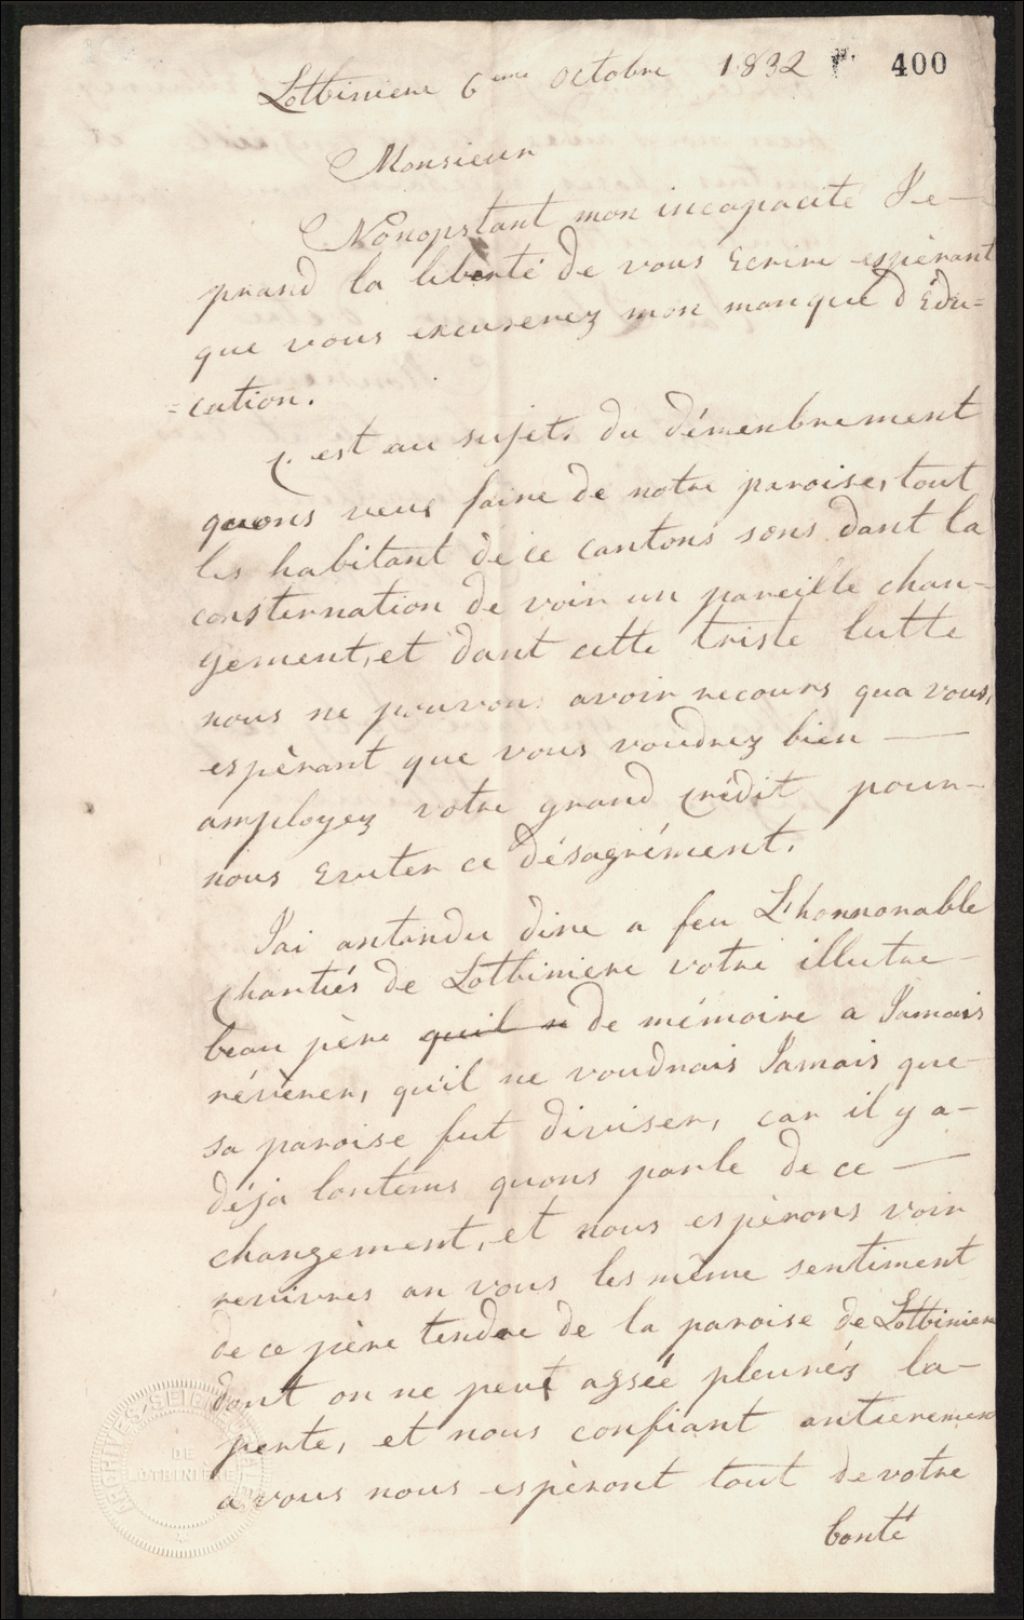 400
Lotbiniere 6eme octobre 1832
Monsieur
Nonopstant mon incapacité Je-
prand la liberté de vous Ecrire espèrant
que vous excuserez mon manque d'Édu=
=cation.
C. est au sujet. du démenbrement
quons veut faire de notre paroise, tout
les habitant de ce cantons sons dant la
consternation de voir un pareille chan-
gement, et dant cette triste lutte
nous ne pouvon avoir recours qua vous,
espèrant que vous voudrez bien —
amployez votre grand crédit pour-
nous Eviter ce désagrément.
J'ai antandu dire a feu L'honnorable
Chartiés de Lotbiniere votre illutre-
beau père quil n de mémoire a Jamais
révèrer, qu'il ne voudrais Jamais que-
sa paroise fut diviser, car il y a-
déja lontems quons parle de ce —
changement, et nous espèrons voir
revivres an vous les même sentiment
de ce père tendre de la paroise de Lotbiniere
dont on ne peut assée pleurés la-
perte, et nous confiant antierement
a vous nous espèront tout de votre
bonté
ARCHIVES SEIGNEURIE
DE
LOTBINIERE